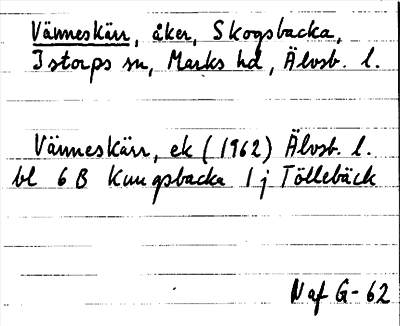 Vänneskärr, åker, Skogsbacka,
Istorps sn, Marks hd, Älvsb. l.
Vänneskärr, ek (1962) Älvsb. l.
bl 6 B Kungsbacka 1 j Töllebäck
Naf G-62